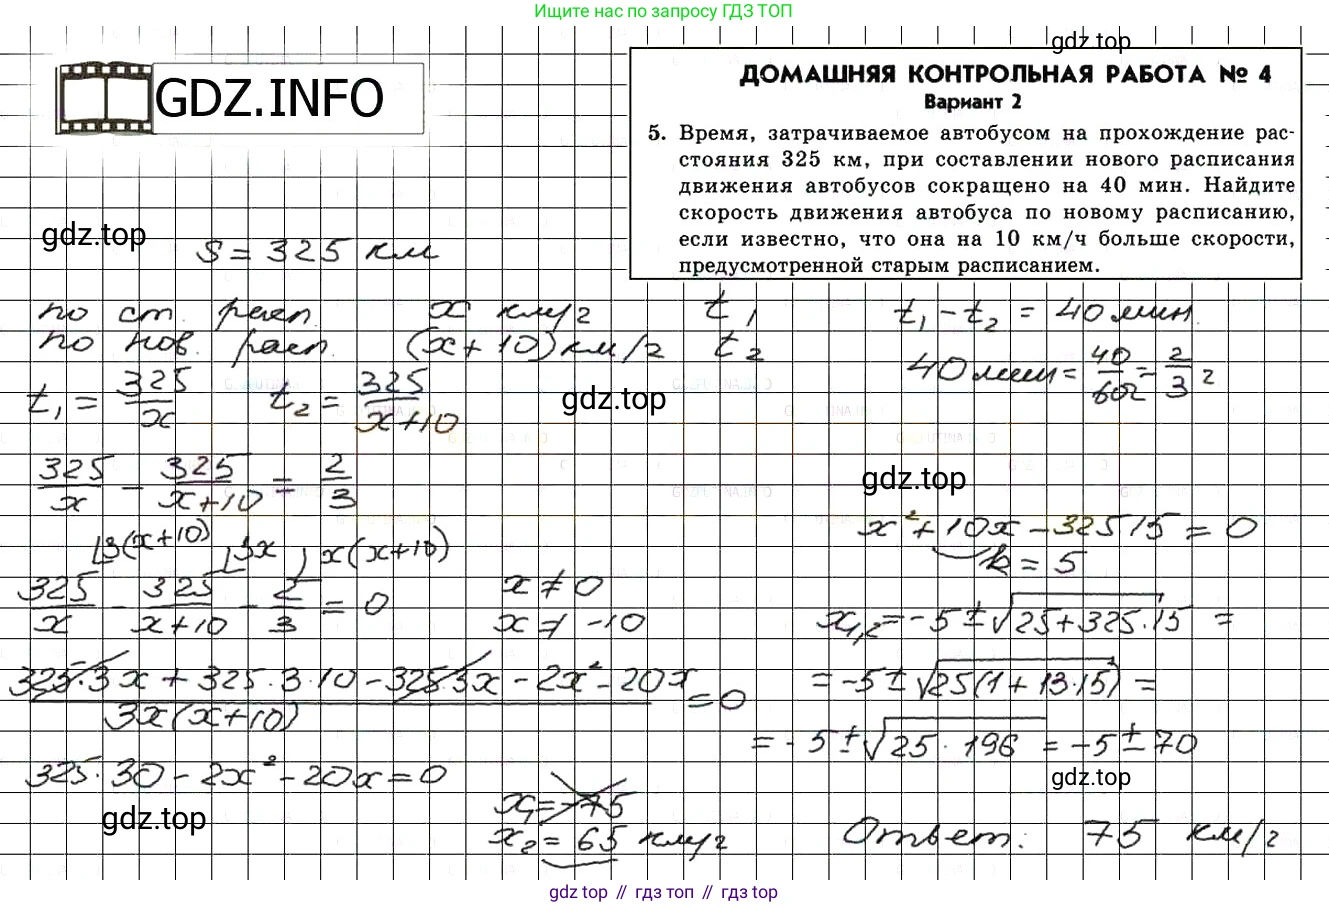 Ищите нас по запросу ГДЗ ТОП
gdz.top
GDZ.INFO
ДОМАШНЯЯ КОНТРОЛЬНАЯ РАБОТА № 4
Вариант 2
5. Время, затрачиваемое автобусом на прохождение рас-
стояния 325 км, при составлении нового расписания
движения автобусов сокращено на 40 мин. Найдите
скорость движения автобуса по новому расписанию,
если известно, что она на 10 км/ч больше скорости,
предусмотренной старым расписанием.
gdz.top
S = 325 км
по ст. расп. x км/ч t₁ t₁ - t₂ = 40 мин.
по нов. расп. (x+10) км/ч t₂
40 мин = 40/60 ч = 2/3 ч
t₁ = 325/x t₂ = 325/(x+10)
gdz.top
325/x - 325/(x+10) = 2/3
gdz.top
3(x+10) 3x x(x+10)
325/x - 325/(x+10) - 2/3 = 0
x ≠ 0
x ≠ -10
(325·3x + 325·3·10 - 325·3x - 2x² - 20x)/(3x(x+10)) = 0
325·30 - 2x² - 20x = 0
x² + 10x - 325·15 = 0
k = 5
x₁,₂ = -5 ± √(25+325·15) =
= -5 ± √(25(1+13·15)) =
= -5 ± √(25·196) = -5 ± 70
gdz.top
gdz.top
x₁ = -75
x₂ = 65 км/ч
Ответ: 75 км/ч
gdz top // гдз топ // gdz top